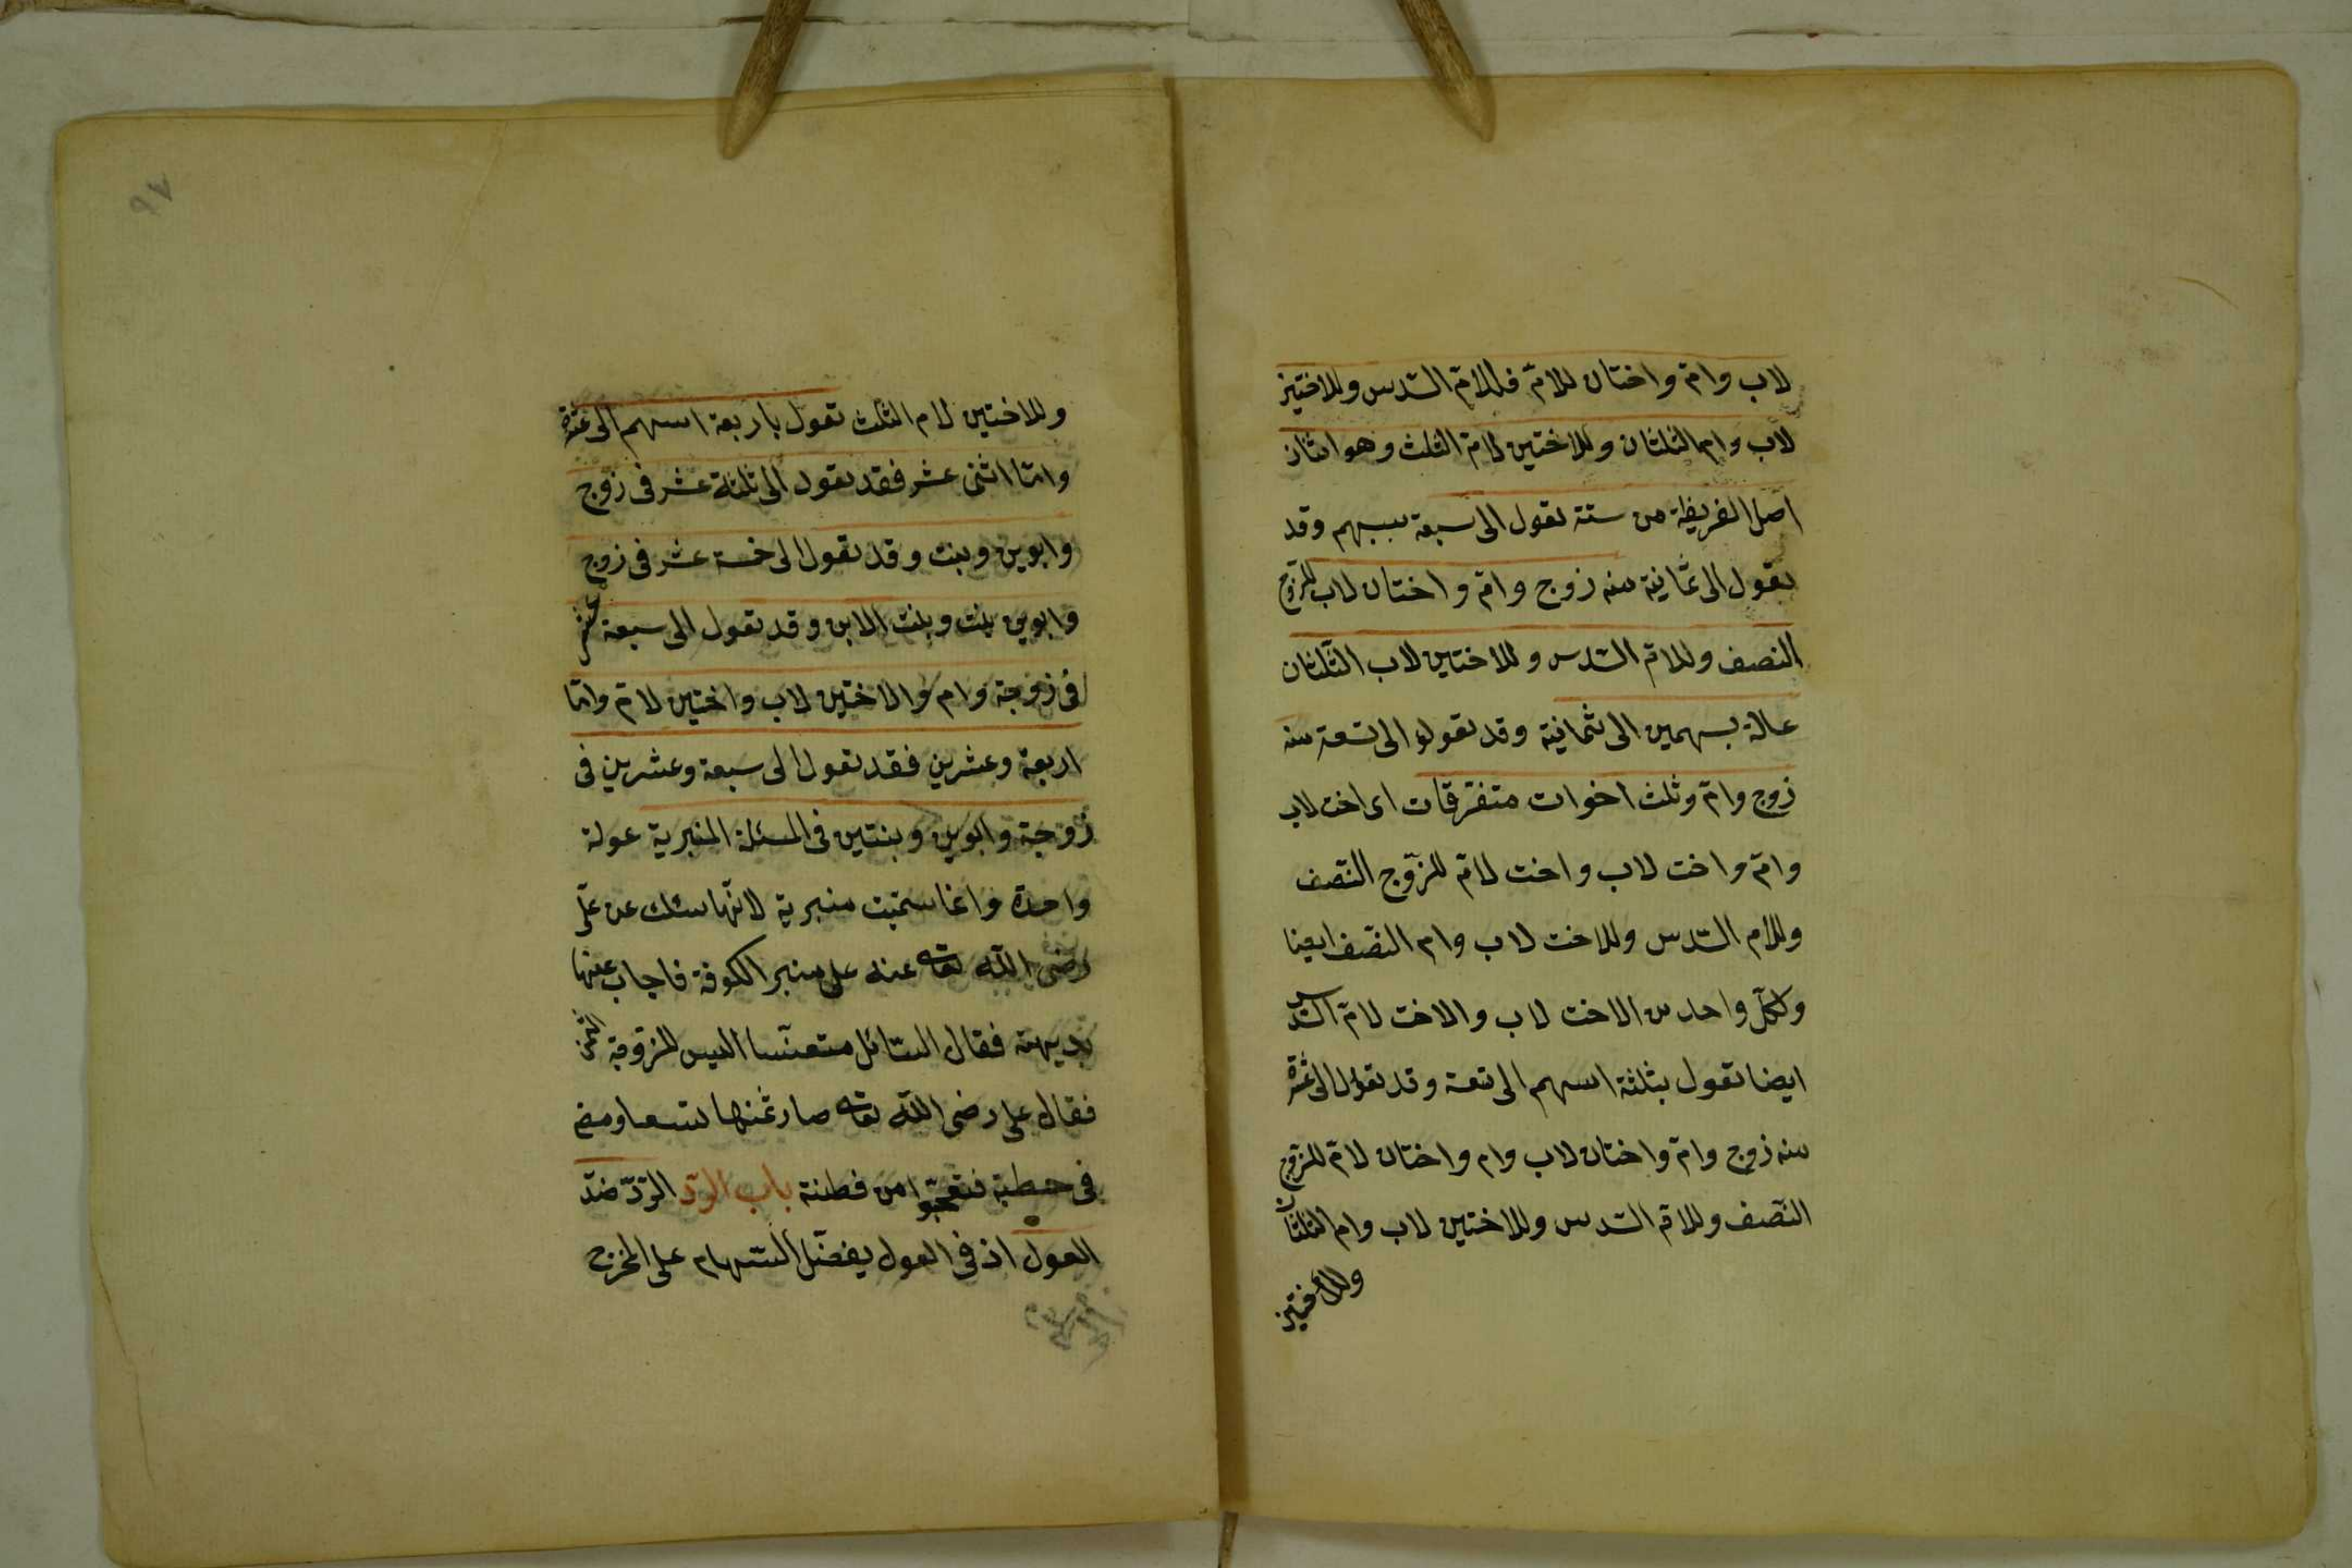 لاب وامّ واختان للامّ فللامّ السّدس وللاختين
لاب وام الثلثان وللاختين لامّ الثلث وهو اثنان
اصل الفريظة من ستة تعول الى سبعة بسهم وقد
تعول الى ثمانية منه زوج وامّ واختان لاب للزّوج
النصف وللامّ السّدس وللاختين لاب الثّلثان
عالة بسهمين الى ثمانية وقد تعول الى تسعة منه
زوج وامّ وثلث اخوات متفرّقات اى اخت لاب
وامّ واخت لاب واخت لامّ للزّوج النّصف
وللام السّدس وللاخت لاب وام النصف ايضا
ولكلّ واحد من الاخت لاب والاخت لامّ السّدس
ايضا تعول بثلثة اسهم الى تسعة وقد تعول الى عشرة
منه زوج وامّ واختان لاب وام واختان لامّ للزّوج
النّصف وللامّ السّدس وللاختين لاب وام الثلثان
وللاختين
٩٧
وللاختين لام الثلث تعول باربعة اسهم الى عشرة
وامّا اثنى عشر فقد تعول الى ثلثة عشر فى زوج
وابوين وبنت وقد تعول الى خمسة عشر فى زوج
وابوين بنت وبنت الابن وقد تعول الى سبعة عشر
فى زوجة وام والاختين لاب واختين لامّ وامّا
اربعة وعشرين فقد تعول الى سبعة وعشرين فى
زوجة وابوين وبنتين فى المسئلة المنبرية عولة
واحدة وانما سمّيت منبرية لانّها سئلت عن علىّ
رضى اللّه تعالى عنه على منبر الكوفة فاجاب عنها
بديهة فقال السّائل متعنّتا اليس للزّوجة الثمن
فقال على رضى اللّه تعالى صار ثمنها تسعا ومضى
فى خطبة فتعجّبوا من فطنة باب الردّ الردّ ضدّ
العول اذ فى العول يفضّل السّهام على المخرج